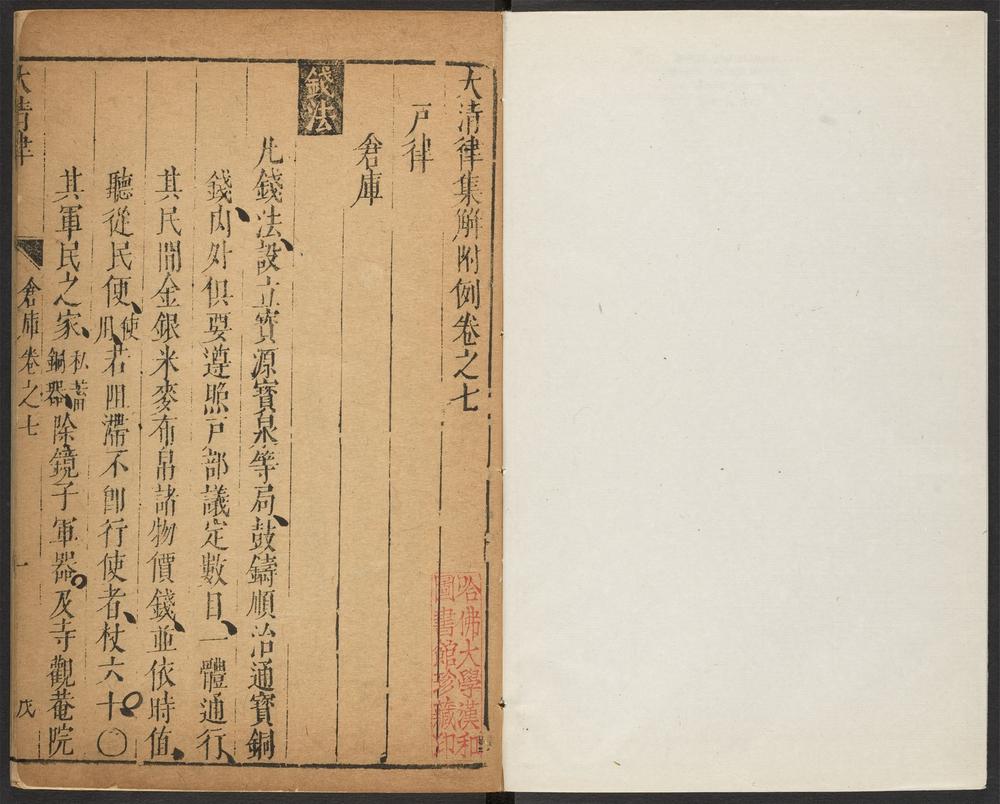 大清律集解附例卷之七
戶律
倉庫
錢法
凡錢法、設立寶源寶泉等局、鼓鑄順治通寶銅
錢、內外俱要遵照戶部議定數目、一體通行、
其民間金銀米麥布帛諸物價錢、並依時值、
聽從民便、使用、若阻滯不卽行使者、杖六十。〇
其軍民之家、私蓄銅器、除鏡子軍器。及寺觀菴院
大清律 倉庫卷之七 一 戊
哈佛大學漢和
圖書館珍藏印